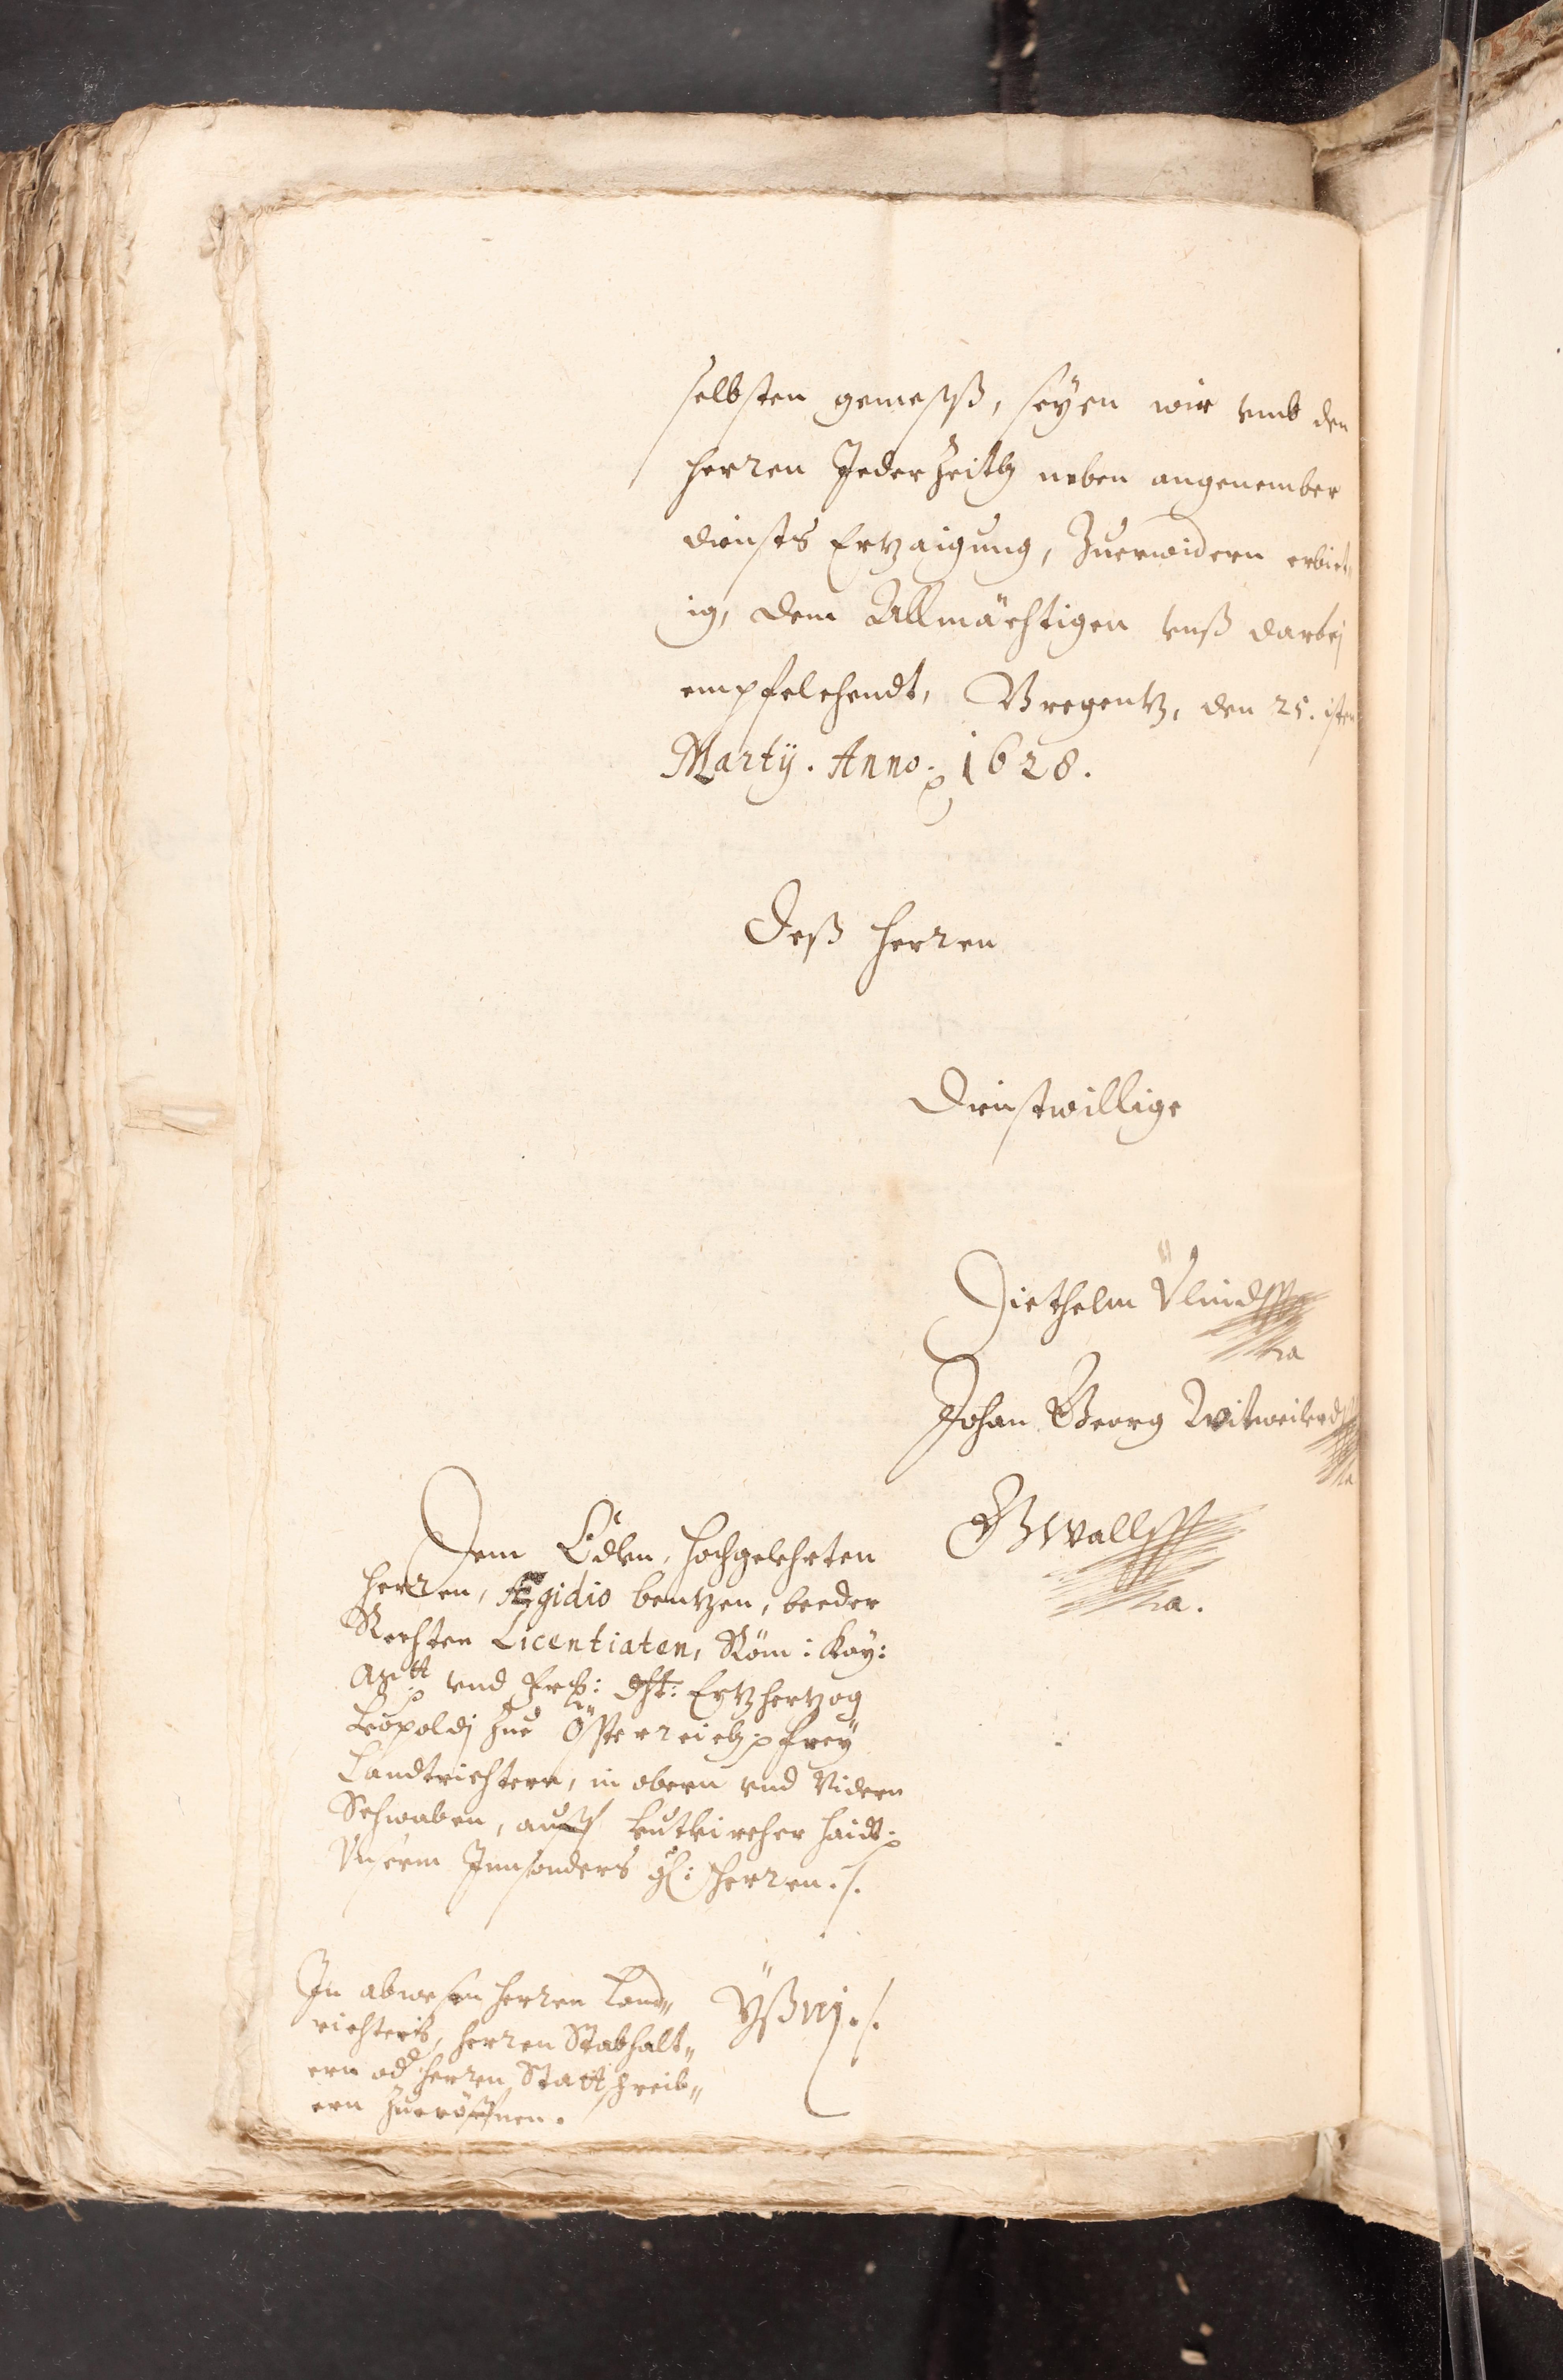 selbsten gemeß, seÿen wir vmb den
herren Jederzeith neben angenember
diensts Ertzaigung, Zuerwidern erbiet
ig, dem Allmächtigen vnß darbej
empfelchendt, Bregentz, den 25. isten
Martÿ. Anno. 1628.
Deß herren
Dienstwillige
Diethelm
Johan Georg Witweiler
Dem Edlen, hochgelehrten
herren, Ægidio bentzen, beeder
Rechten Licentiaten, Röm: Kaÿ:
Mtt vnd Frh: Dht: Ertzhertzog
Leopoldj Zue Össterreich freÿ
Landtrichtern, in obern vnd Nidern
Schwaben, auff Leutkircher haidt:
Vnserm Innsonders gl: herren ./.
In abwesen herren Land„
richters, herren Stabhalt„
ern od herren Stattschreib„
ern Zueröffnen.
Ÿßnj ./.